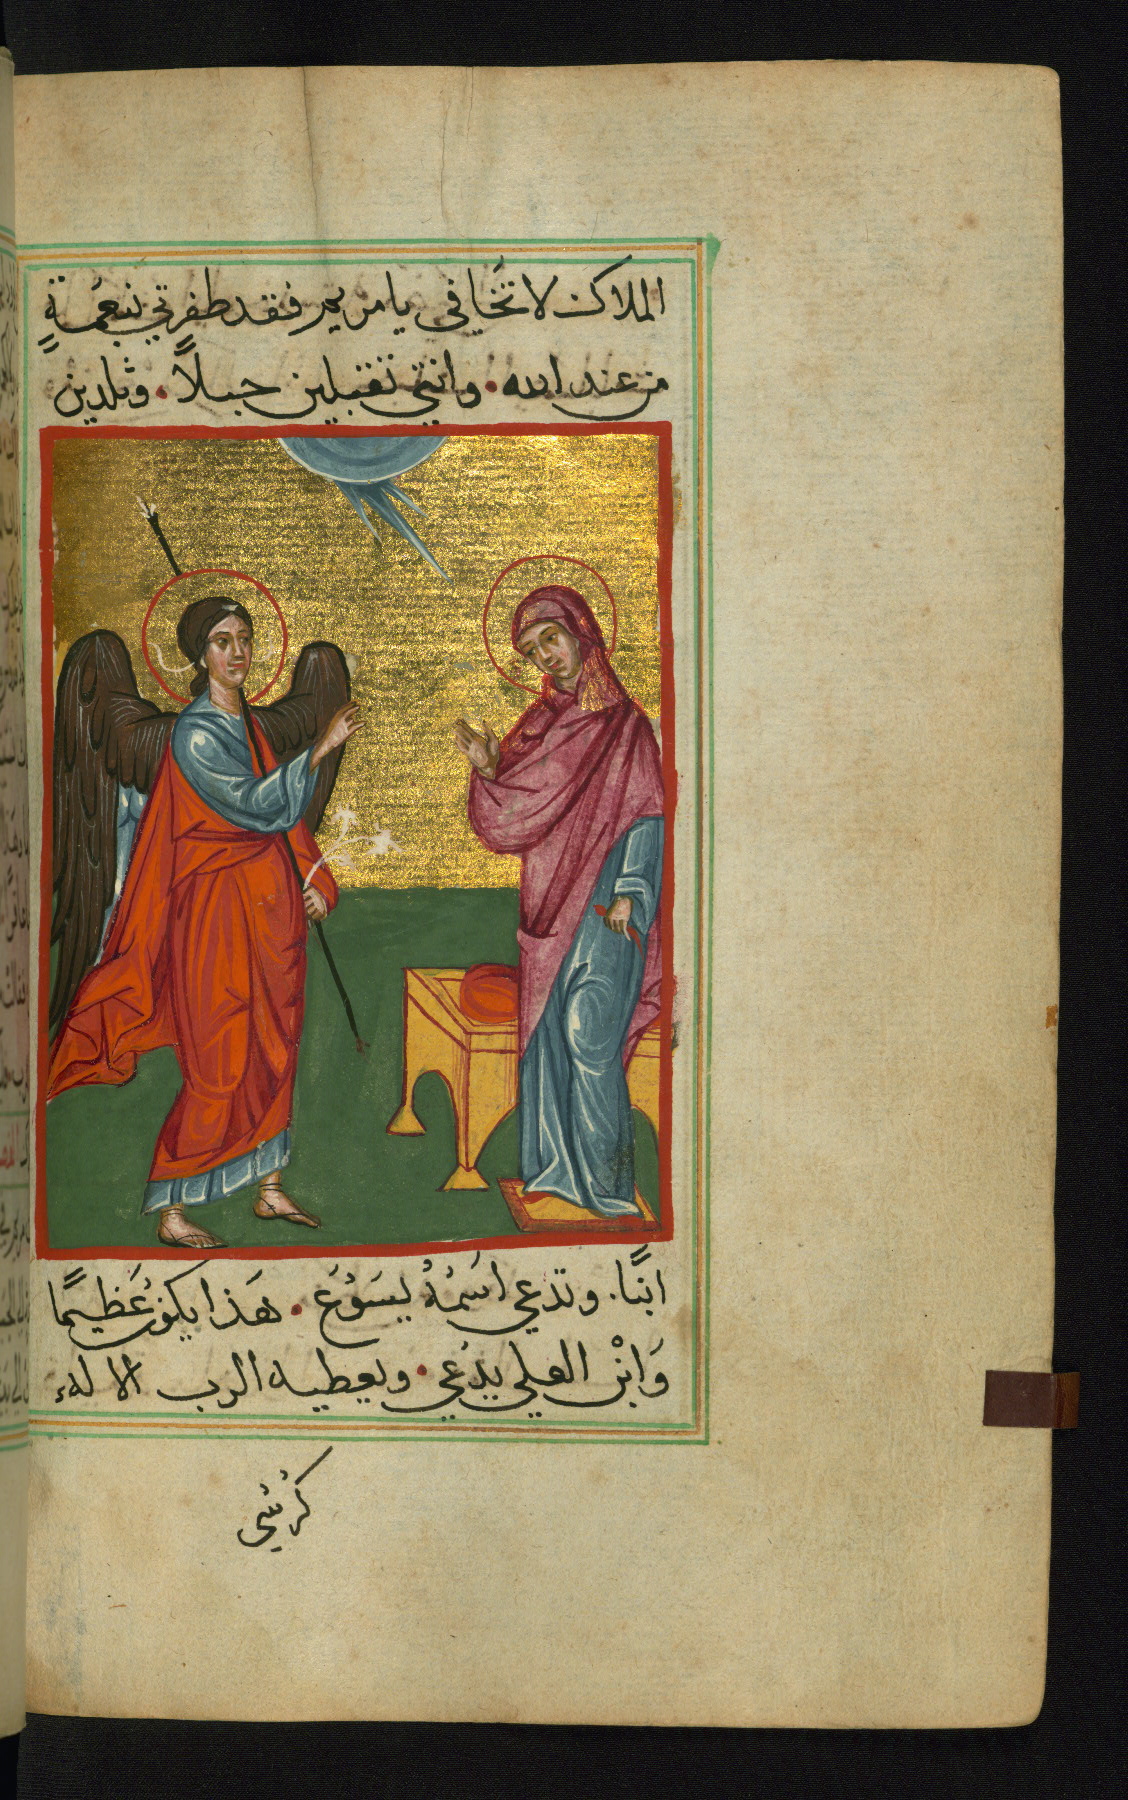 الملاك لا تَخَافي يا مريم فقد ظفرتي بنِعمَةٍ
من عند الله • وانتي تقبلين حبلاً • وتلدين
ابنًا. وتدعي اسَمُهُ يسَوُعَ • هَذا يكوُن عَظيمًا
وَابْن العلي يدُعي • ويعطيه الرب الاله
كرُسُي